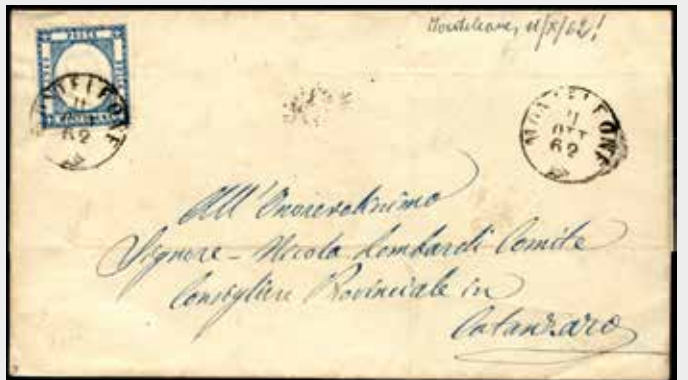 Monteleone, 11/X/62!
MONTELEONE
11
62
MONTELEONE
11
OTT
62
All'Onorevolissimo
Signore - Nicola Lombardi Comite
Consigliere Provinciale in
Catanzaro